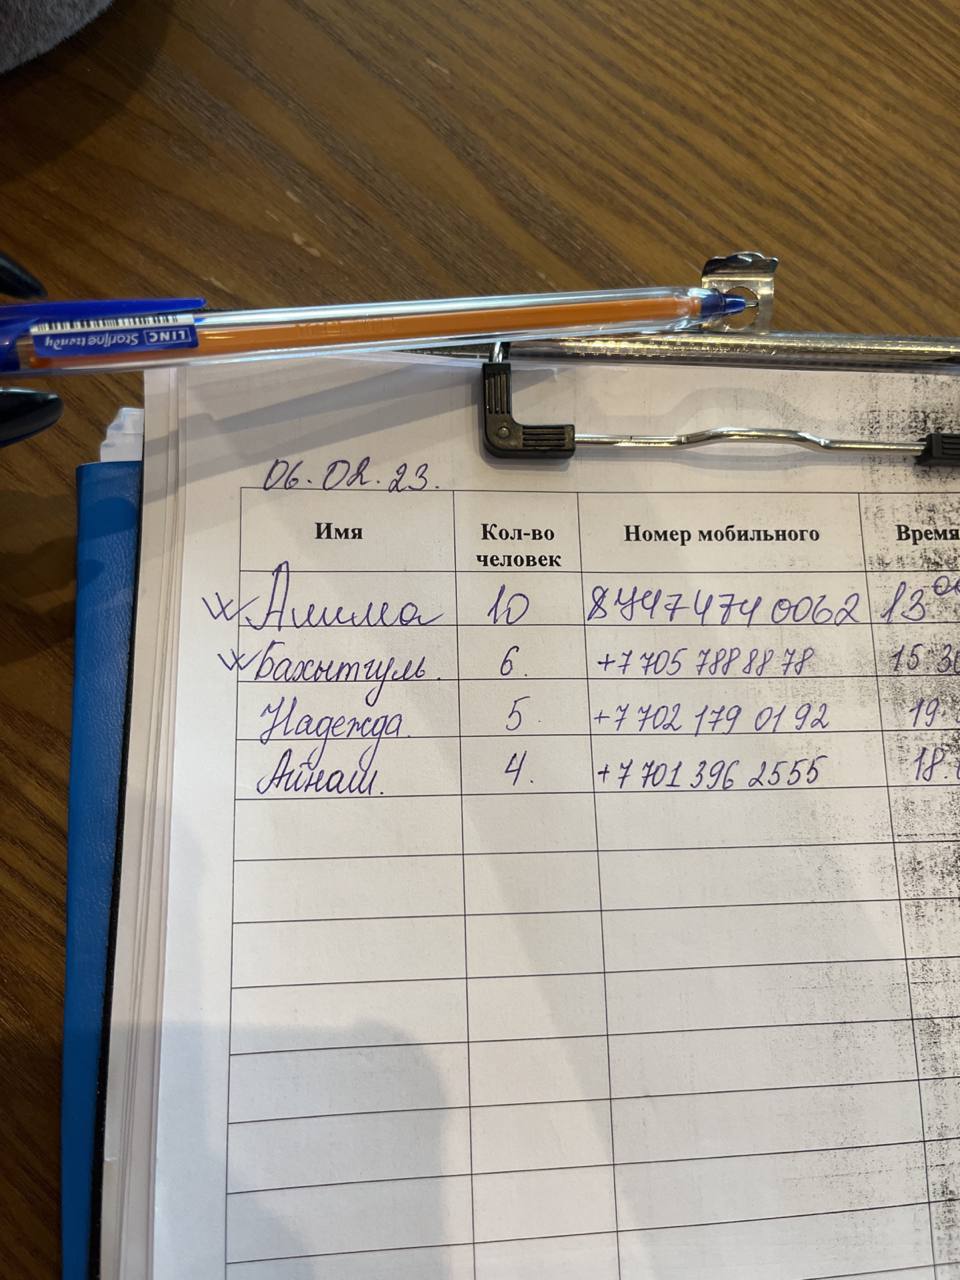 LINC
Starline trendy
06.02.23.
Имя Кол-во человек Номер мобильного Время
Алима 10 87474740062 13 00
Бахытгуль. 6. +7 705 788 88 78 15 30
Надежда. 5. +7 702 179 01 92 19.
Айнаш. 4. +7 701 396 2555 18.